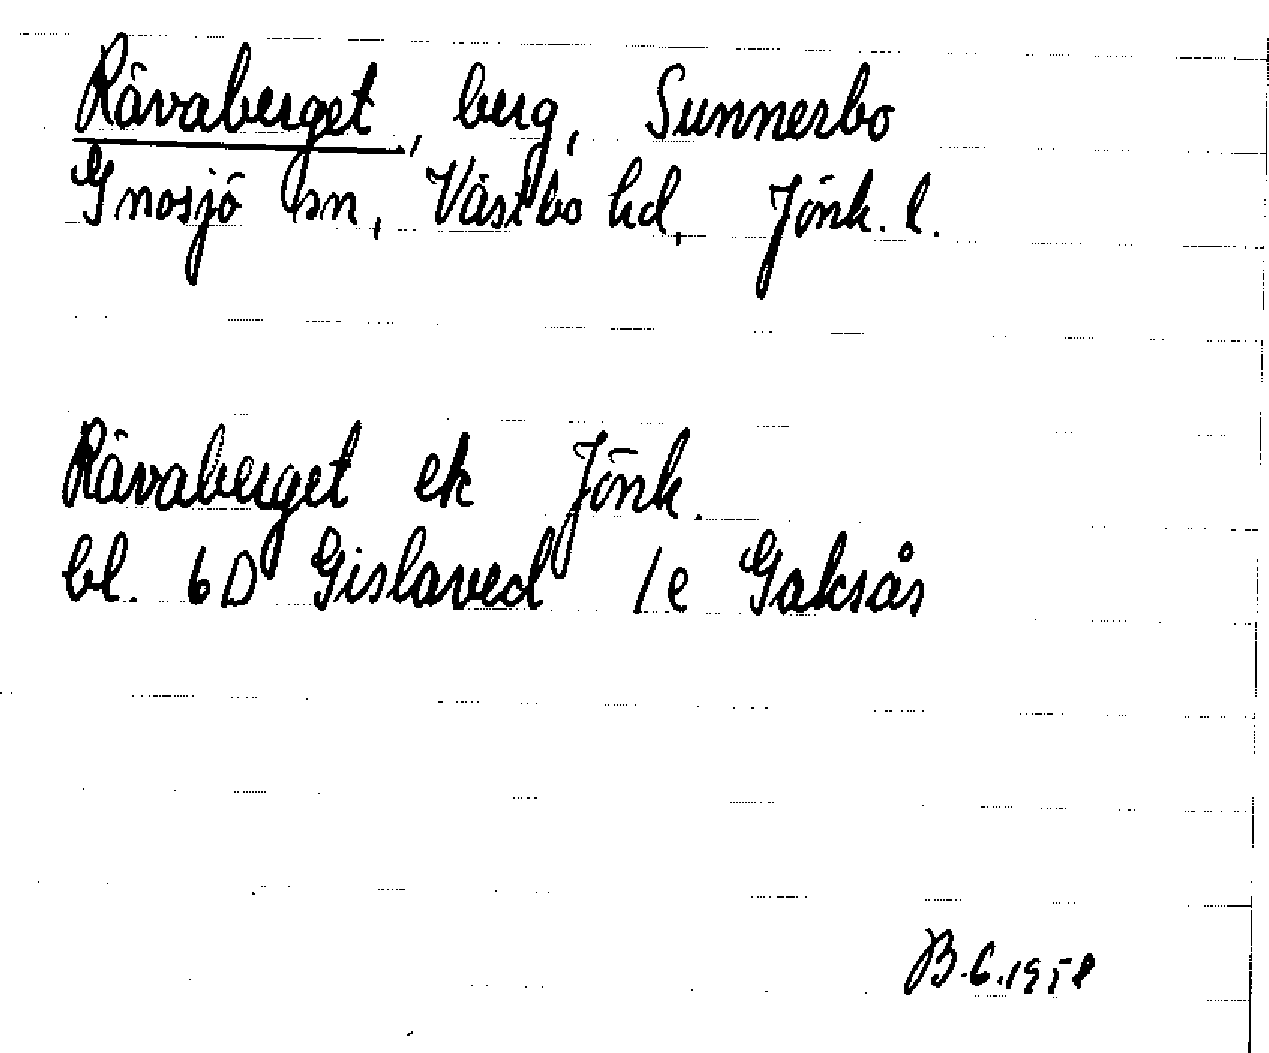 Rävaberget, berg, Sunnerbo
Gnosjö sn, Västbo hd, Jönk. l.
Rävaberget ek Jönk.
bl. 6D Gislaved 1e Gaksås
B.G. 1958